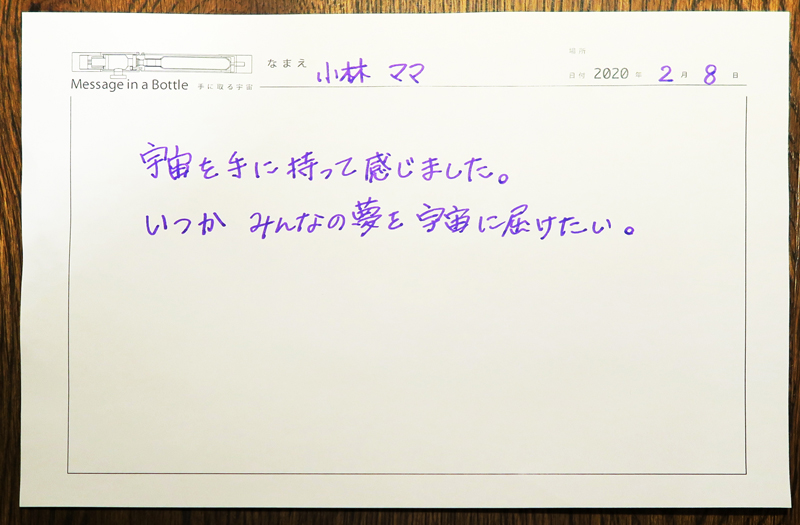 場所
なまえ 小林 ママ
日付 2020 年 2 月 8 日
Message in a Bottle 手に取る宇宙
宇宙を手に持って感じました。
いつか みんなの夢を宇宙に届けたい。